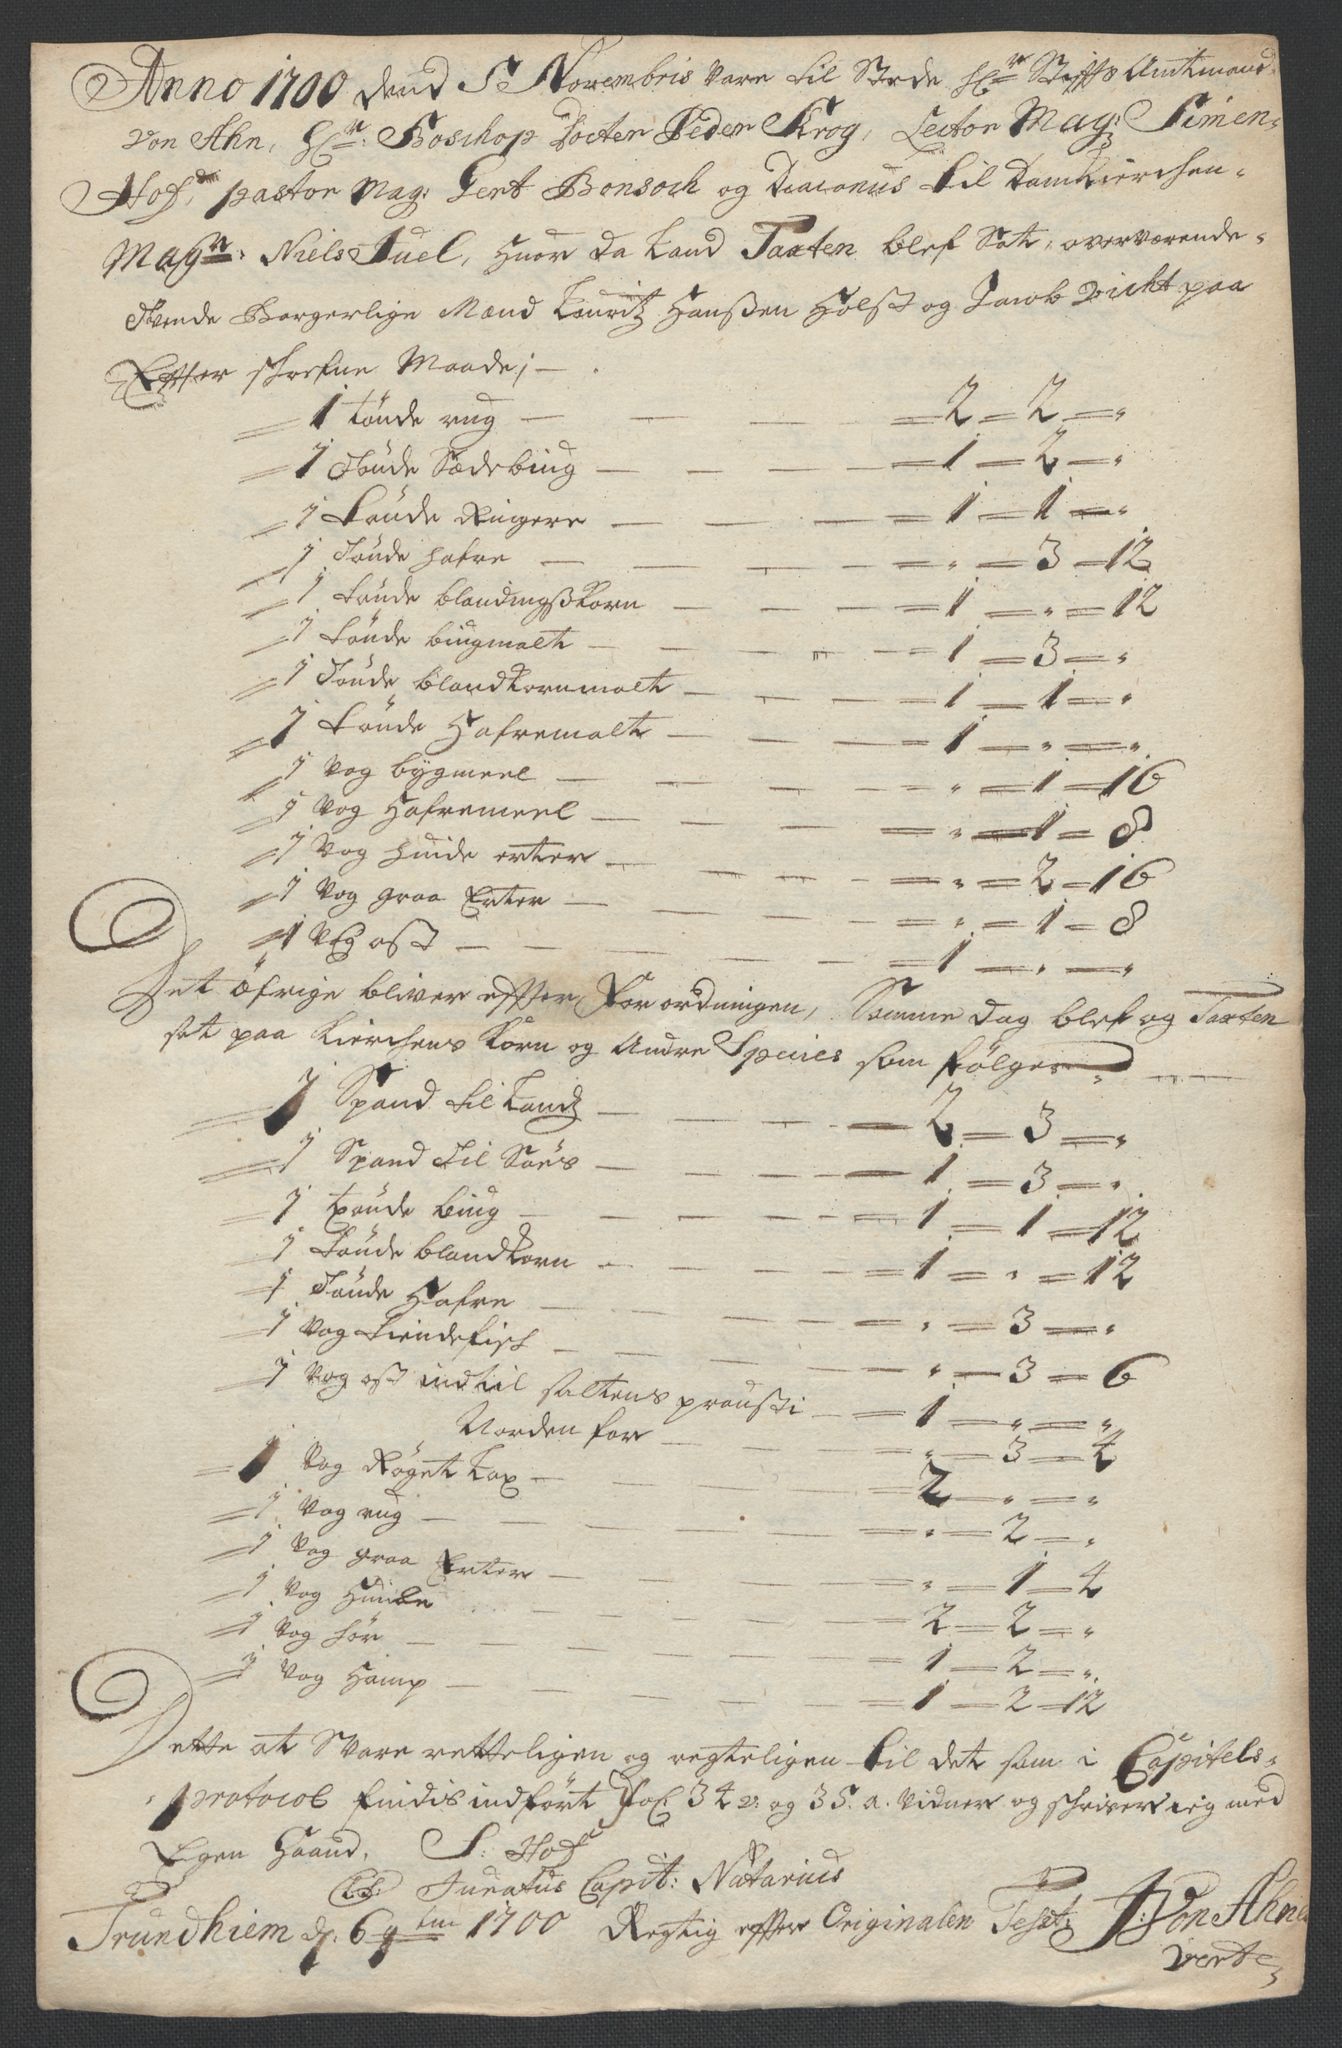 Anno 1700 dend 5 Novembris vare til Stede Hr Stiffts Amtmand
Von Ahn, Hr: Boschop Docter Peder Krog, Lector Mag: Simen
Hof, pastor Mag: Gert Bonsoch og Diaconus til Damkierchen
Magr: Niels Juel, huor da Land Taxten blef Sat, overværende
tvende Borgerlige Mænd Lauritz Hanßen Holst og Jacob Vicht paa
Effter schrefne Maade;
1 tønde rug — 2 — 2 — "
1 Tønde Sædebiug — 1 — 2 — "
1 tønde Ringere — 1 — 1 — "
1 Tønde hafre — " — 3 — 12
1 tønde blandingßkorn — 1 — " — 12
1 tønde biugmalt — 1 — 3 — "
1 Tønde blandkornmalt — 1 — 1 — "
1 tønde Hafremalt — 1 — " — "
1 Vog bÿgmeel — " — 1 — 16
1 Vog Hafremeel — " — 1 — 8
1 Vog huide erter — " — 2 — 16
1 Vog graa Erter — " — 1 — 8
1 Vog ost — 1 — " — "
Det öfrige bliver effter Forordningen, Samme dag blef og Taxten
sat paa kierchens korn og Andre Species som følger
1 Spand til Landz — 2 — 3 — "
1 Spand til Søes — 1 — 3 — "
1 tønde biug — 1 — 1 — 12
1 tønde blandkorn — 1 — " — 12
1 Tønde Hafre — " — 3 — "
1 Vog tiendefisch — " — 3 — 6
1 Vog ost indtil saltens prousti — 1 — " — "
Norden for — " — 3 — 4
1 Vog Røget Lax — 2 — " — "
1 Vog rug — " — 2 — "
1 Vog graa Erter — " — 1 — 4
1 Vog Humle — 2 — 2 — "
1 Vog hør — 1 — 2 — "
1 Vog Hamp — 1 — 2 — 12
Dette at Svare retteligen og regteligen til det som i Capitels
protocol findis indført Fol: 34 2: og 35. a. vidner og schriver ieg med
Egen Haand, S: Hof
(LS) Juratus Capit: Natarius
Trundhiem d. 6 9bm 1700 Regtig effter Originalen Test: JVon Ahnen
verte